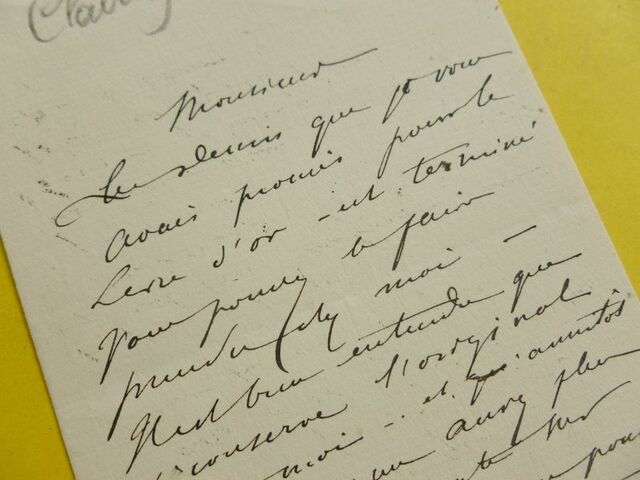 Clairin
Monsieur
Le dessin que je vous
avais promis pour le
Livre d'or - est terminé
vous pouvez le faire
prendre chez moi -
Il est bien entendu que
je conserve l'original
moi - et qu'aussitôt
aurez
sur
pour